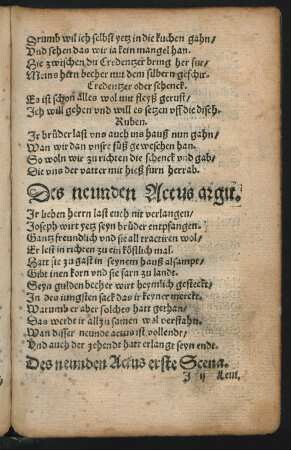 Drumb wil ich selbst yetz in die kuchen gahn/
Vnd sehen das wir ja kein mangel han.
Hie zwischen du Credentzer bring her für/
Meins herrn becher mit dem silbern geschir.
Credentzer oder schenck.
Es ist schon Alles wol mit fleyß gerust/
Ich will gehen vnd will es setzen vff die disch.
Ruben.
Ir brüder last vns auch ins hauß nun gahn/
Wan wir dan vnsre füß geweschen han.
So woln wir zu richten die schenck vnd gab/
Die vns der vatter mit hieß furn herrab.
Des neunden Actus argū.
Ir lieben herrn last euch nit verlangen/
Joseph wirt yetz seyn brüder entpfangen.
Gantz freundlich vnd sie all tractiren wol/
Er lest in richten zu ein köstlich mal.
Hatt sie zu gast in seynem hauß alsampt/
Gibt inen korn vnd sie farn zu landt.
Seyn gulden becher wirt heymlich gesteckt/
In des jungsten sack das ir keyner merckt.
Warumb er aber solches hatt gethan/
Das werdt ir all zu samen wol verstahn.
Wan disser neunde actus ist vollendt/
Vnd auch der zehendt hatt erlangt seyn endt.
Des neunden Actus erste Scena.
J ij Leui.